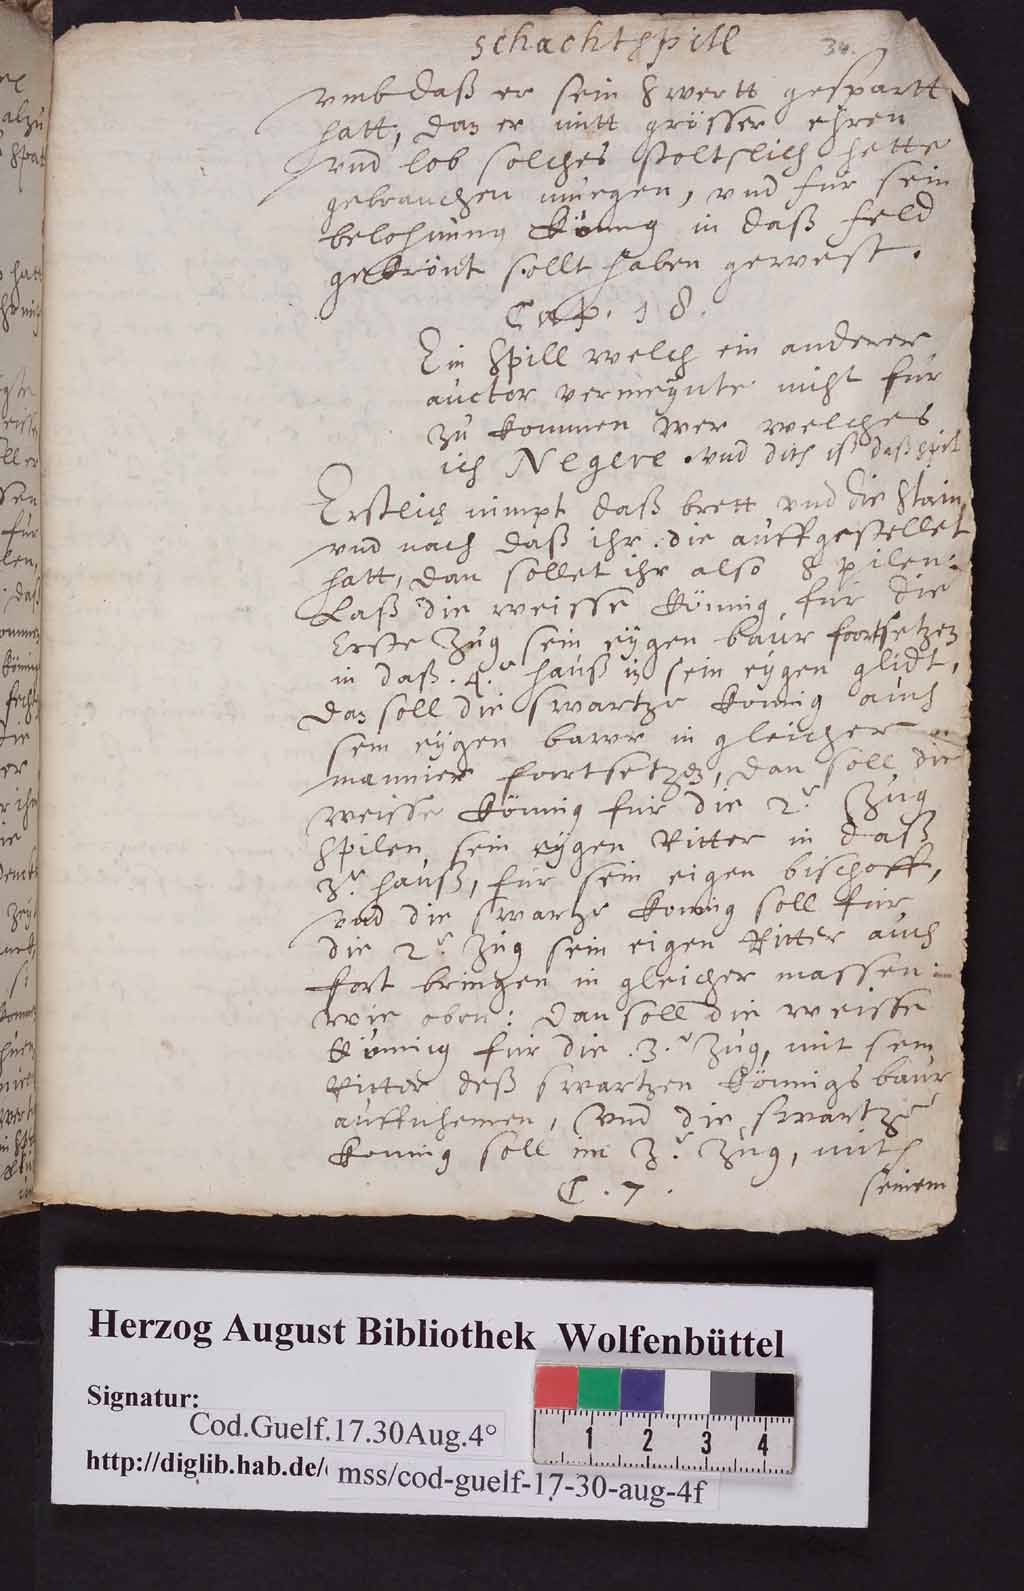 schachtspill 34.
vmb daß er sein swertt gespartt
hatt, dan er mitt grösser ehren
vnd lob solches stoltslich hette
gebrauchen muegen, vnd für sein
belohnung König in daß feld
gekrönt sollt haben gewest.
Cap. 18.
Ein Spill welch ein anderer
auctor vermeynte nicht für
zu kommen wer welches
ich Negere. vnd dith iß daß spil
Erstlich nimpt daß brett vnd die stain
vnd nach daß ihr die auffgestellet
hatt, dan sollet ihr also spilen:
Laß die weisse Könnig für die
Erste Zug sein eÿgen baur foortsetzen
in daß .4.r hauß in sein eygen glidt,
dan soll die swartze Konnig auch
sein eÿgen bawr in gleicher
mannier foortsetzen, dan soll die
weisse Könnig für die 2.r Zug
spilen sein eÿgen Ritter in daß
3.r hauß, für sein eigen bischoff,
vnd die swartze Konnig soll für
die 2.r Zug sein eigen Ritter auch
fort bringen in gleicher massen
wie oben: dan soll die weisse
Könnig für die .3.r Zug, mit sein
Ritter deß swartzen Könnigs baur
auffnhemen, vnd die swartze
Konnig soll im 3.r Zug, mit
C. 7. seinem
Herzog August Bibliothek Wolfenbüttel
Signatur:
Cod.Guelf.17.30Aug.4°
http://diglib.hab.de/ mss/cod-guelf-17-30-aug-4f
1 2 3 4